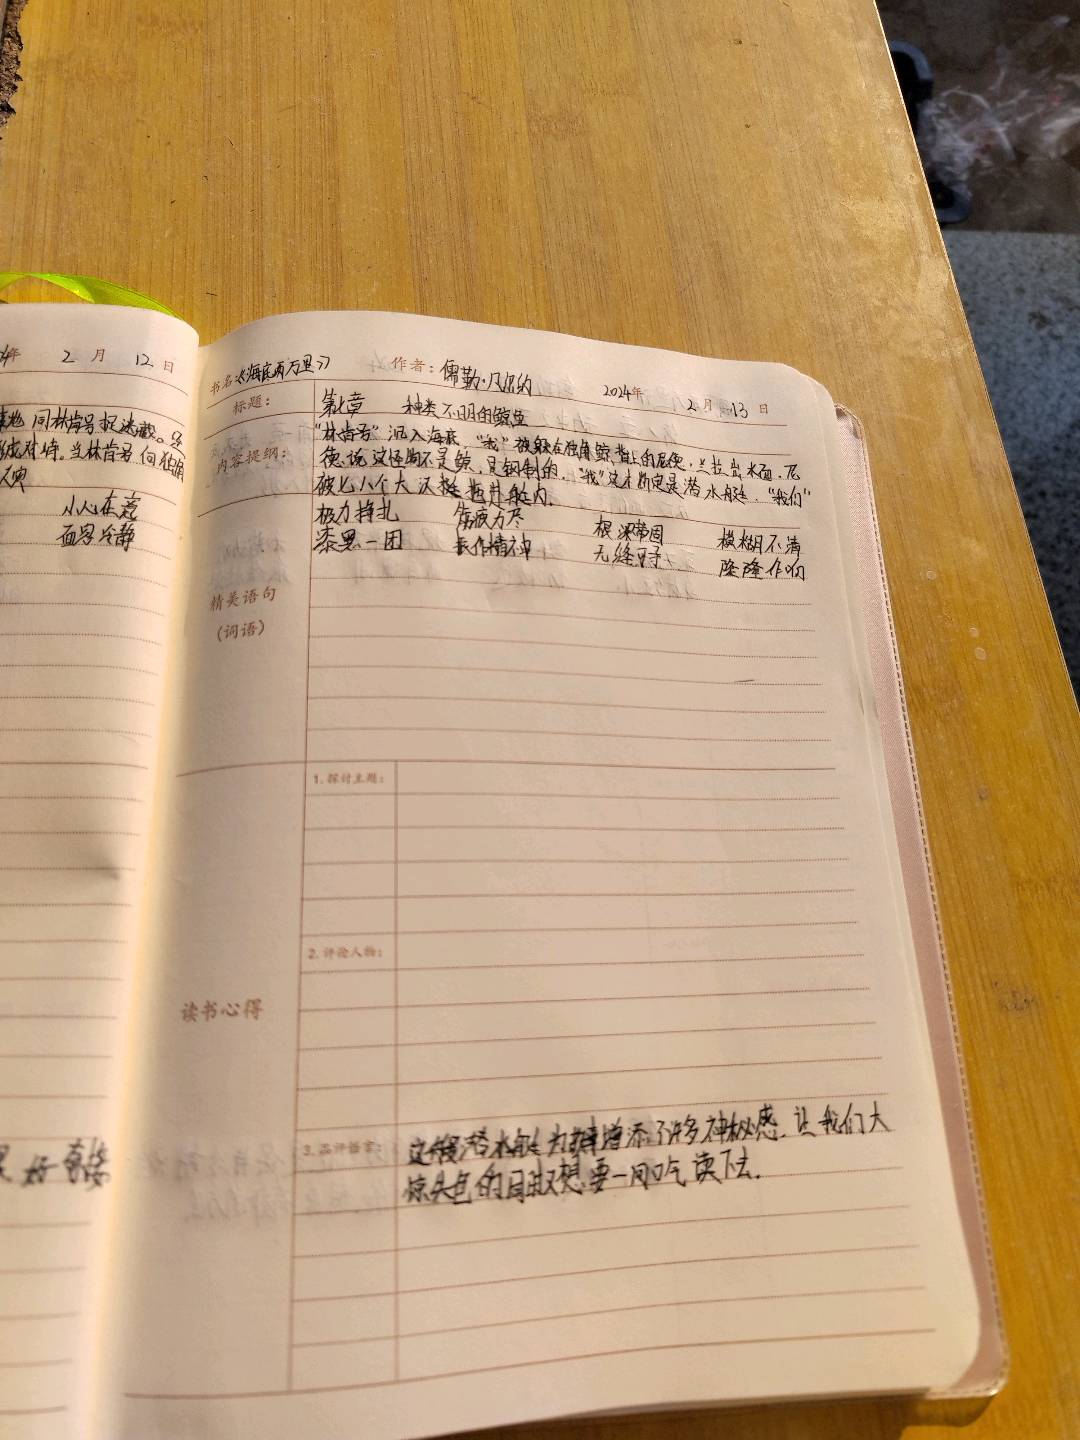 年 2 月 12 日
同林肯号捉迷藏。
对峙。当林肯号向独角
小心在意
面容冷静
好奇接
书名:《海底两万里》 作者:儒勒·凡尔纳 2024年 2 月 13 日
标题: 第七章 种类不明的鲸鱼
内容提纲: "林肯号"沉入海底,"我"被躲在独角鲸背上的尼德·兰拉出水面,尼
德说这怪物不是鲸,是钢制的,"我"这才断定是潜水艇,"我们"
被七八个大汉拖进艇内。
精美语句
(词语)
极力挣扎 筋疲力尽 根深蒂固 模糊不清
漆黑一团 振作精神 无缝可寻 隆隆作响
读书心得
1.探讨主题:
2.评论人物:
3.品评语言: 这艘潜水艇为故事增添了许多神秘感,让我们大
惊失色的同时又想要一口气读下去.